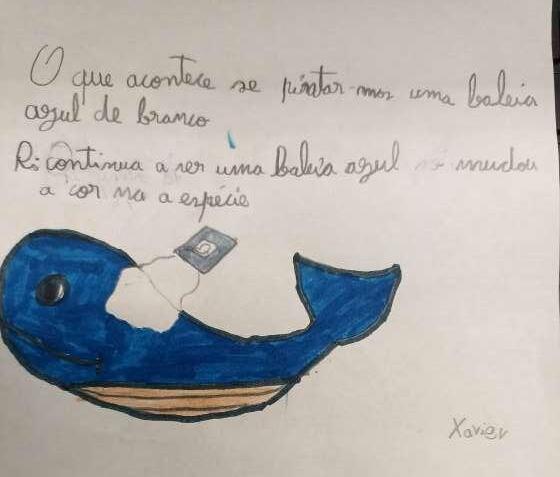 O que acontece se pintar-mos uma baleia
azul de branco
R: continua a ser uma baleia azul só mudou
a cor na a espécie
Xavier